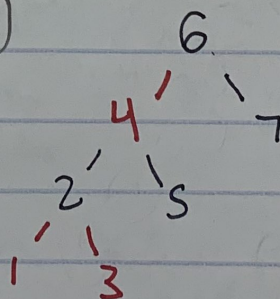 6
4 7
2 5
1 3